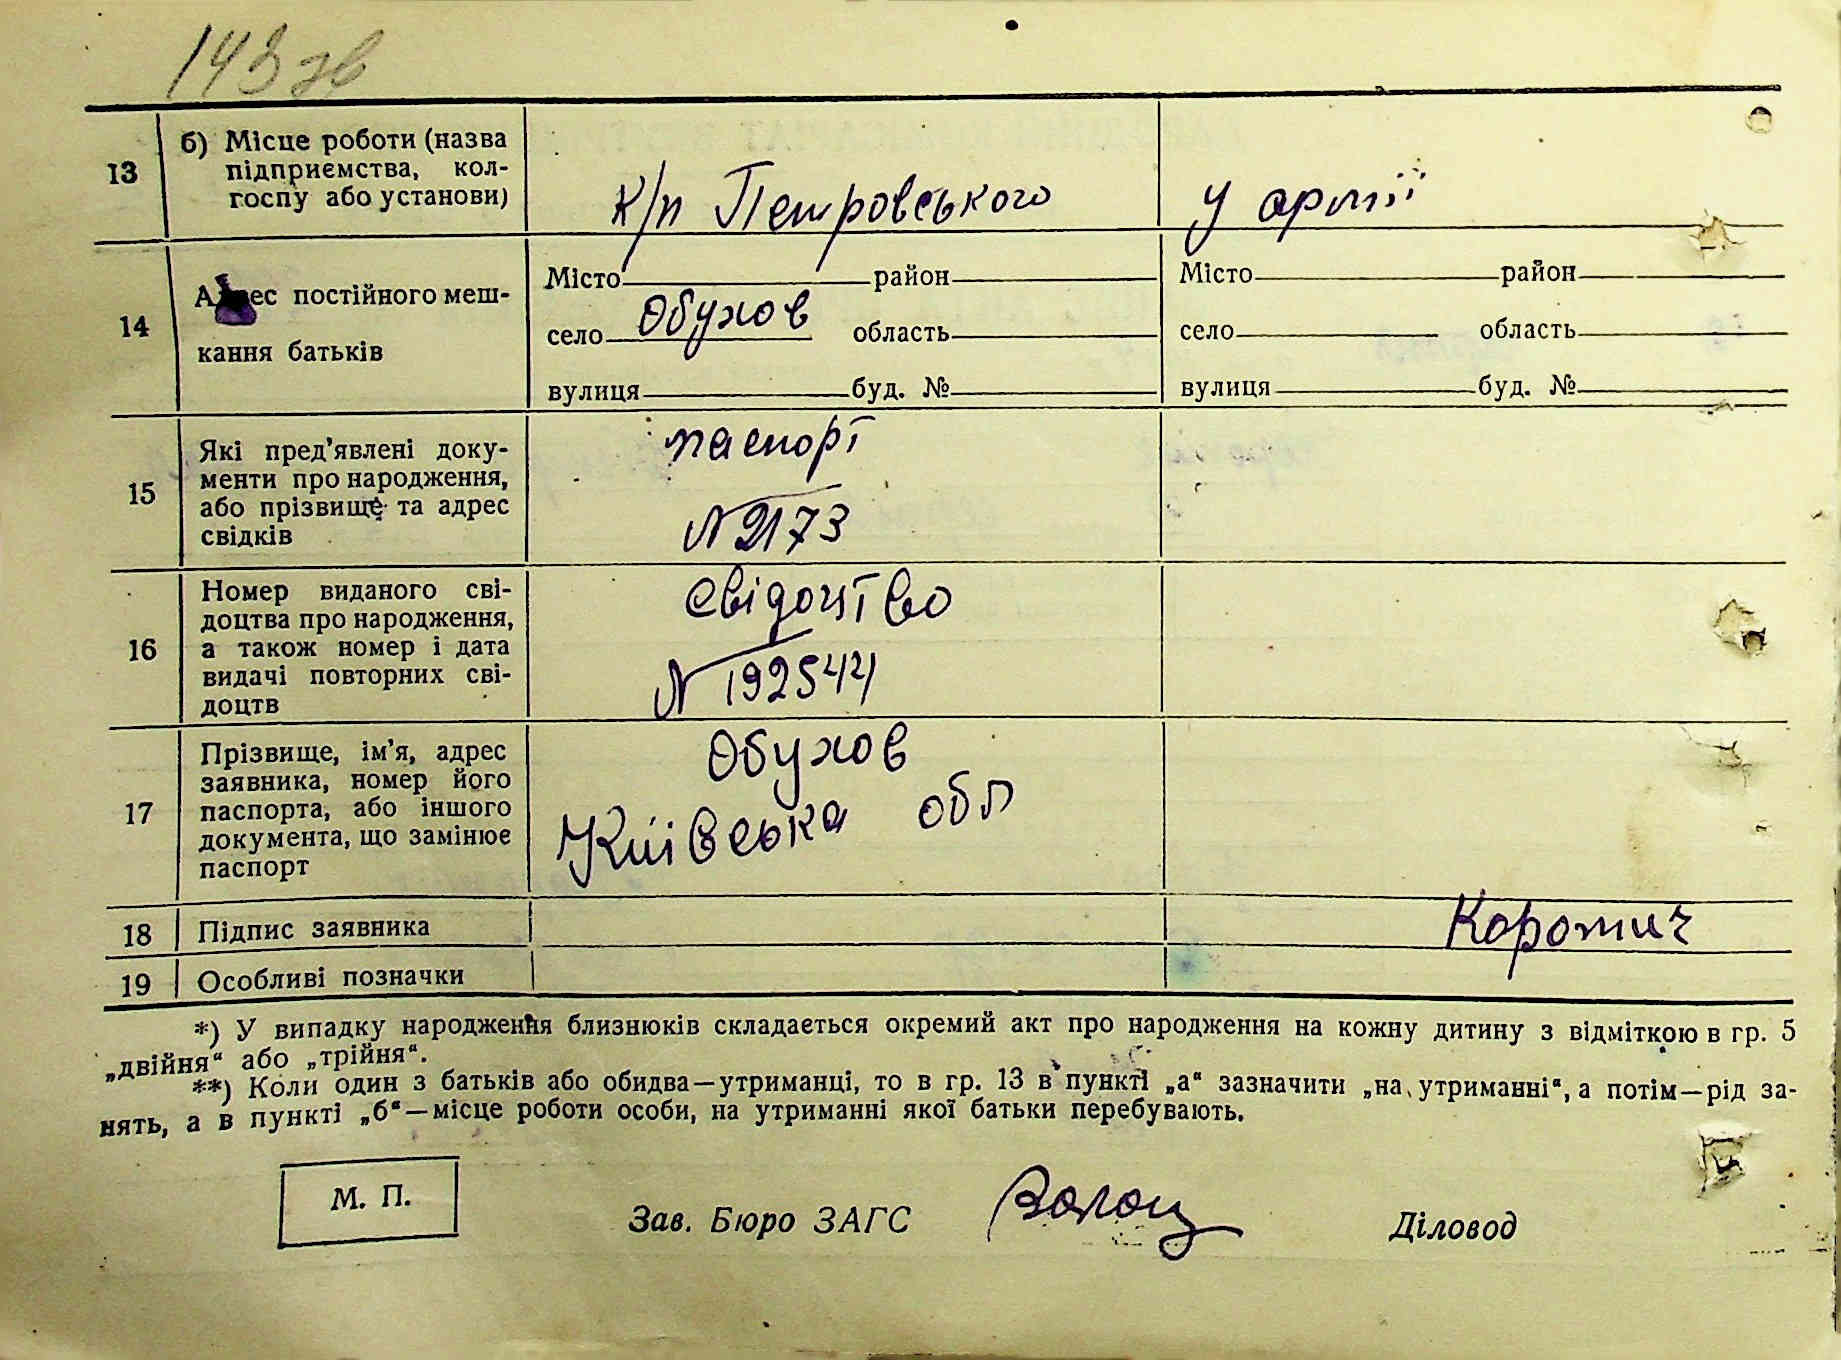 143 зв
13
б) Місце роботи (назва
підприємства, кол-
госпу або установи)
к/п Петровського
у армії
14
Адрес постійного меш-
кання батьків
Місто район
село Обухов область
вулиця буд. №
Місто район
село область
вулиця буд. №
15
Які пред'явлені доку-
менти про народження,
або прізвище та адрес
свідків
паспорт
N 2173
16
Номер виданого сві-
доцтва про народження,
а також номер і дата
видачі повторних сві-
доцтв
Свідоцтво
N 192544
17
Прізвище, ім'я, адрес
заявника, номер його
паспорта, або іншого
документа, що замінює
паспорт
Обухов
Київська обл
18
Підпис заявника
Коротич
19
Особливі позначки
*) У випадку народження близнюків складається окремий акт про народження на кожну дитину з відміткою в гр. 5
„двійня“ або „трійня“.
**) Коли один з батьків або обидва—утриманці, то в гр. 13 в пункті „а“ зазначити „на утриманні“, а потім—рід за-
нять, а в пункті „б“—місце роботи особи, на утриманні якої батьки перебувають.
М. П.
Зав. Бюро ЗАГС
Діловод